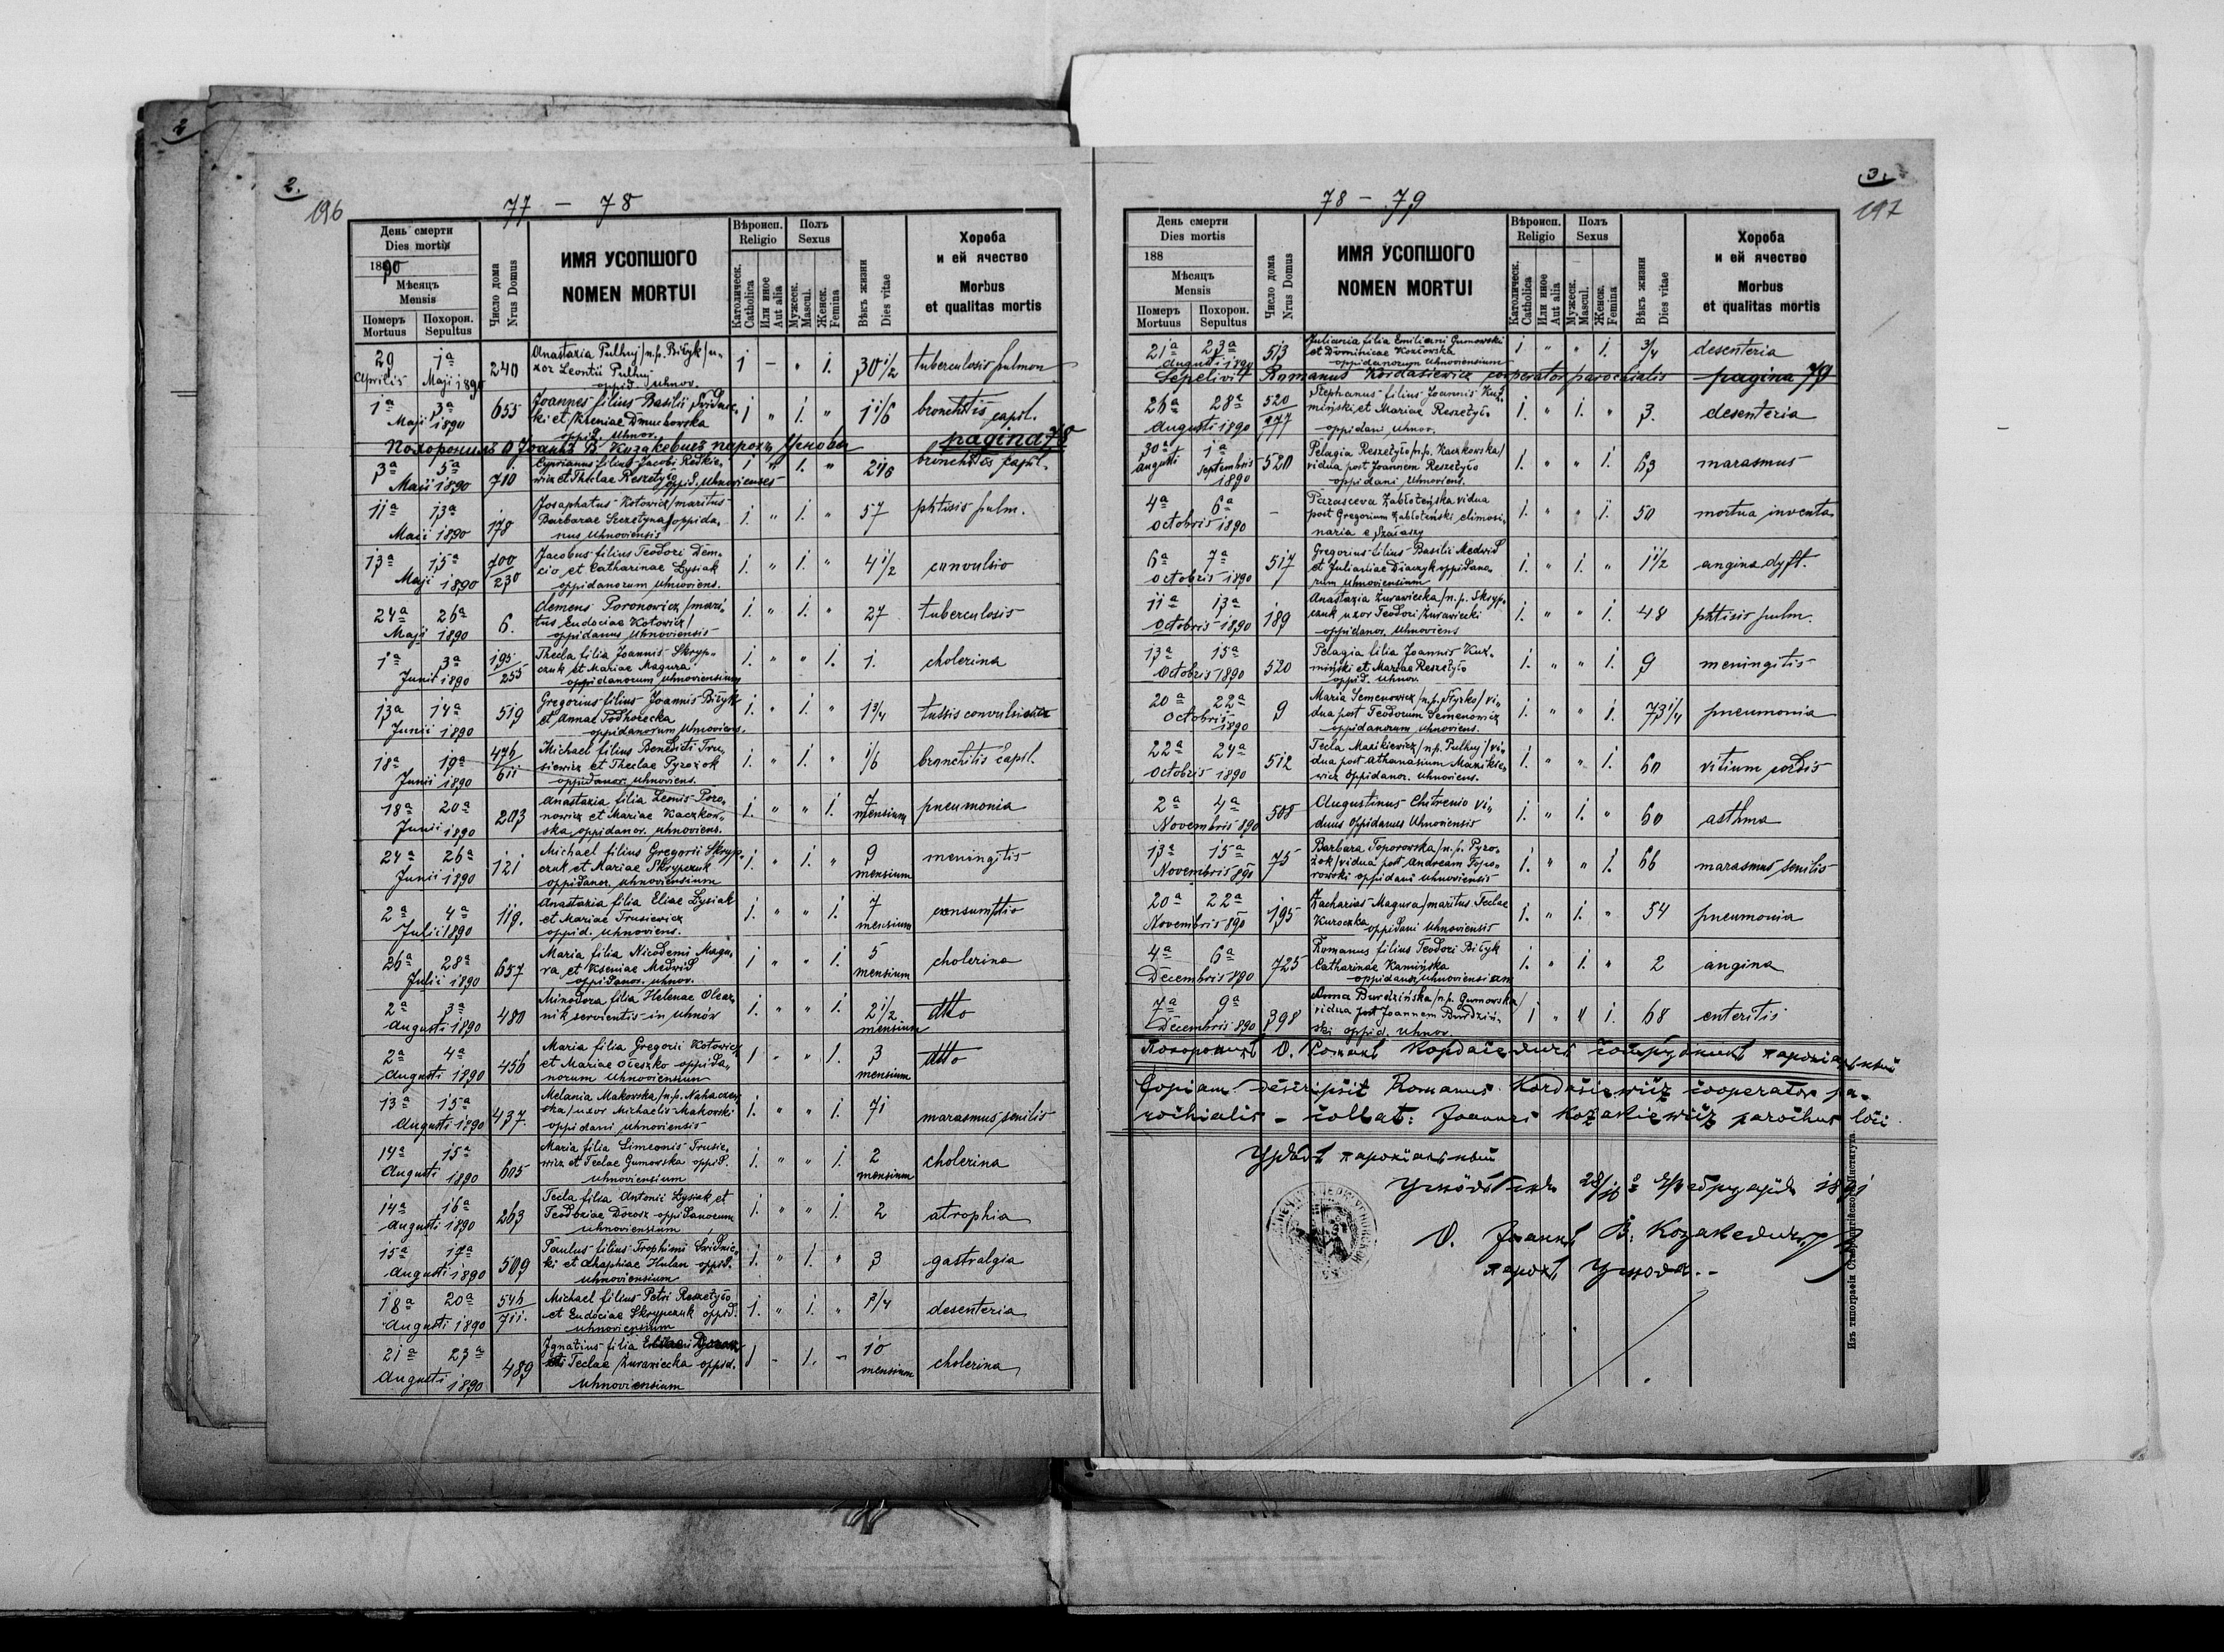 2
2.
196
77 - 78
День смерти
Dies mortis
1890
Мѣсяцъ
Mensis
Померъ
Mortuus
Похорон.
Sepultus
Число дома
Nrus Domus
ИМЯ УСОПШОГО
NOMEN MORTUI
Вѣроисп.
Religio
Католическ.
Catholica
Или иное
Aut alia
Полъ
Sexus
Мужеск.
Mascul.
Женск.
Femina
Вѣкъ жизни
Dies vitae
Хороба
и ей ячество
Morbus
et qualitas mortis
29 Aprilis 1a Maji 1890 240 Anastazia Pulhuj /n.p. Biłyk/ u-
xor Leontii Pulhuj
oppid. Uhnov. 1 - " 1. 30 1/2 tuberculosis pulmon
1a 3a Maji 1890 655 Joannes filius Basilii
ki et Xreniae Dmuchowska
oppid. Uhnov. 1 " 1. " 1 1/6 bronchitis capil.
Похоронилъ О Іоаннъ В. Козакевичъ парохъ Угнова pagina 78
3a 5a Maji 1890 710 Cyprianus filius Jacobi Redkie-
wicz et Theclae Reszetyło oppid. Uhnovienses 1 " 1. " 2 1/6 bronchitis capil.
11a 13a Maji 1890 178 Josaphatus Kotowicz /maritus
Barbarae Szczetyna/ oppida-
nus Uhnoviensis 1. " 1. " 57 phtisis pulm.
13a 15a Maji 1890 700/230 Jacobus filius Teodori Dem-
cio et Catharinae Łysiak
oppidanorum Uhnoviens. 1. " 1. " 4 1/2 convulsio
24a 26a Maji 1890 6. Clemens Poronowicz /mari-
tus Eudociae Kotowicz/
oppidanus Uhnoviensis 1. " 1. " 27 tuberculosis
1a 3a Junii 1890 195/255 Thecla filia Joannis Skryp-
czuk et Mariae Magura
oppidanorum Uhnoviensium 1. " " 1. 1. cholerina
13a 14a Junii 1890 519 Gregorius filius Joannis Biłyk
et Annae Podhorecka
oppidanorum Uhnoviens. 1. " 1. " 1 3/4 tussis convulsiva
18a 19a Junii 1890 476/611 Michael filius Benedicti Tru-
siewicz et Theclae Pyrożok
oppidanor. Uhnoviens. 1. " 1. " 1/6 bronchitis capil.
18a 20a Junii 1890 203 Anastazia filia Leonis Poro-
nowicz et Mariae Kaczkow-
ska, oppidanor. Uhnoviens. 1. " " 1. 7 mensium pneumonia
24a 26a Junii 1890 121 Michael filius Gregorii Skryp-
czuk et Mariae Skrypczuk
oppidanor. Uhnoviensium 1. " 1. " 9 mensium meningitis
2a 4a Julii 1890 119. Anastazia filia Eliae Łysiak
et Mariae Trusiewicz
oppid. Uhnoviens. 1. " " 1. 7 mensium consumptio
26a 28a Julii 1890 657 Maria filia Nicodemi Magu-
ra et Kseniae Medwid
oppidanor. Uhnov. 1 " " 1. 5 mensium cholerina
2a 3a Augusti 1890 480 Minodora filia Helenae Olear-
nik servientis in Uhnów 1. " " 1. 2 1/2 mensium dtto
2a 4a Augusti 1890 456 Maria filia Gregorii Kotowicz
et Mariae Oleszko oppida-
norum Uhnoviensium 1 " " 1. 3 mensium dtto
13a 15a Augusti 1890 437. Melania Makowska /n.p. Nahaczew-
ska/ uxor Michaelis Makowski
oppidani Uhnoviensis 1. " " 1. 71 marasmus senilis
14a 15a Augusti 1890 605 Maria filia Simeonis Trusie-
wicz et Teclae Gumowska oppid.
Uhnoviensium 1. " " 1. 2 mensium cholerina
14a 16a Augusti 1890 263 Tecla filia Antonii Łysiak et
Teodoziae Dorosz oppidanorum
Uhnoviensium 1. " " 1. 2 atrophia
15a 17a Augusti 1890 509 Paulus filius Trophimi Swidnic-
ki et Ahaphiae Hulan oppid.
Uhnoviensium 1. " 1. " 3 gastralgia
18a 20a Augusti 1890 546/711. Michael filius Petri Reszetyło
et Eudociae Skrypczuk oppid.
Uhnoviensium 1. " 1. " 3/4 desenteria
21a 23a Augusti 1890 489 Ignatius filia
Teclae Żurawiecka oppid.
Uhnoviensium 1 - 1. - 10 mensium cholerina
3.
197
78 - 79
День смерти
Dies mortis
188
Мѣсяцъ
Mensis
Померъ
Mortuus
Похорон.
Sepultus
Число дома
Nrus Domus
ИМЯ УСОПШОГО
NOMEN MORTUI
Вѣроисп.
Religio
Католическ.
Catholica
Или иное
Aut alia
Полъ
Sexus
Мужеск.
Mascul.
Женск.
Femina
Вѣкъ жизни
Dies vitae
Хороба
и ей ячество
Morbus
et qualitas mortis
21a 23a Augusti 1890 513 Juliania filia Emiliani Gumowski
et Dominicae Kozłowska
oppidanorum Uhnoviensium 1. " " 1. 3/4 desenteria
Sepelivit Romanus Kordasiewicz cooperator parochialis pagina 79
26a 28a Augusti 1890 520/277 Stephanus filius Joannis Kuź-
miński et Mariae Reszetyło
oppidani Uhnov. 1. " 1. " 3. desenteria
30a Augusti 1a Septembris 1890 520 Pelagia Reszetyło /n.p. Kaczkowska/
vidua post Joannem Reszetyło
oppidani Uhnoviens. 1. " " 1. 63 marasmus
4a 6a Octobris 1890 - Parasceva Zabłoteńska vidua
post Gregorium Zabłoteński elimosi-
naria e 1. " " 1. 50 mortua inventa
6a 7a Octobris 1890 517 Gregorius filius Basilii Medwid
et Julianiae Diaczyk oppidano-
rum Uhnoviensium 1. " 1. " 1 1/2 angina dyft.
11a 13a Octobris 1890 189 Anastazia Żurawiecka /n.p. Skryp-
czuk uxor Teodori Żurawiecki
oppidanor. Uhnoviens 1. " " 1. 48 phtisis pulm.
13a 15a Octobris 1890 520 Pelagia filia Joannis Kuź-
miński et Mariae Reszetyło
oppid. Uhnov. 1. " " 1. 9 meningitis
20a 22a Octobris 1890 9 Maria Semenowicz /n.p. Hyrko/ vi-
dua post Teodorum Semenowicz
oppidanorum Uhnoviens. 1. " " 1. 73 1/4 pneumonia
22a 24a Octobris 1890 512 Tecla Mazikiewicz /n.p. Pulhuj/ vi-
dua post Athanasium Mazikie-
wicz oppidanor. Uhnoviens. 1. " " 1. 60 vitium cordis
2a 4a Novembris 890 508 Augustinus Chitrenio vi-
duus oppidanus Uhnoviensis 1. " 1. " 60 asthma
13a 15a Novembris 890 75 Barbara Toporowska /n.p. Pyro-
żok/ vidua post Andream Topo-
rowski oppidani Uhnoviensis 1. " " 1. 66 marasmus senilis
20a 22a Novembris 890 195 Zacharias Magura /maritus Teclae
Kuroczka oppidani Uhnoviensis 1. " 1. " 54 pneumonia
4a 6a Decembris 890 725 Romanus filius Teodori Biłyk
Catharinae Kamińska
oppidanor. Uhnoviensium 1. " 1. " 2 angina
7a 9a Decembris 890 398 Anna Burdzińska /n.p. Gumowska/
vidua post Joannem Burdziń-
ski oppid. Uhnov. 1 " " 1. 68 enteritis
Похоронилъ О. Романъ Кордасевичъ сотрудникъ парохіальный
Copiam descripsit Romanus Kordasiewicz cooperator pa-
rochialis - collat: Joannes Kozakiewicz parochus loci
Урядъ парохіальный
1891
О. Іоаннъ В. Козакевичъ
парохъ Угнова.-
Изъ типографіи Ставропигійского Института.